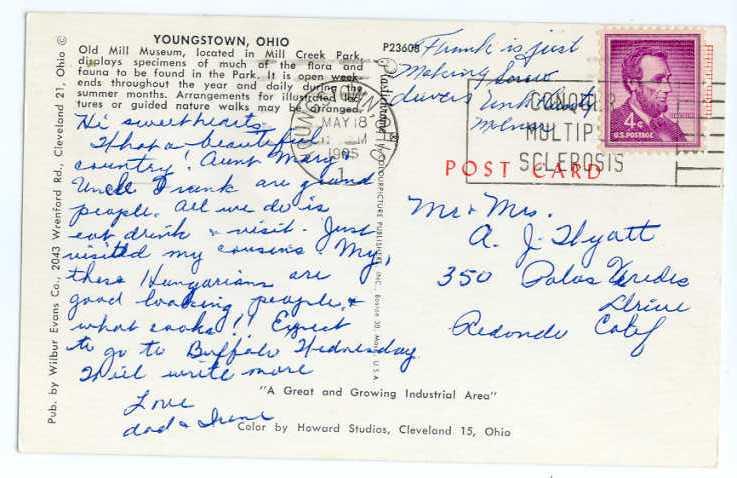 YOUNGSTOWN, OHIO
Old Mill Museum, located in Mill Creek Park,
displays specimens of much of the flora and
fauna to be found in the Park. It is open week-
ends throughout the year and daily during the
summer months. Arrangements for illustrated lec-
tures or guided nature walks may be arranged.
Hi sweethearts
What a beautiful
country! Aunt Mary &
Uncle Frank are grand
people. All we do is
eat drink & visit. Just
visited my cousins. My,
these Hungarians are
good looking people, &
what cooks!! Expect
to go to Buffalo Wednesday
Will write more
Love
dad & Irene
"A Great and Growing Industrial Area"
Color by Howard Studios, Cleveland 15, Ohio
Pub. by Wilbur Evans Co., 2043 Wrenford Rd., Cleveland 21, Ohio ©
P23608
Plastichrome ®
COLOURPICTURE PUBLISHERS, INC., Boston 30, Mass. U.S.A.
Frank is just
making
YOUNGSTOWN, OHIO
MAY 18
1
CONQUER
MULTIPLE
SCLEROSIS
4¢
U.S. POSTAGE
POST CARD
Mr & Mrs.
A. J. Hyatt
350 Palos Verdes
Drive
Redondo Calif